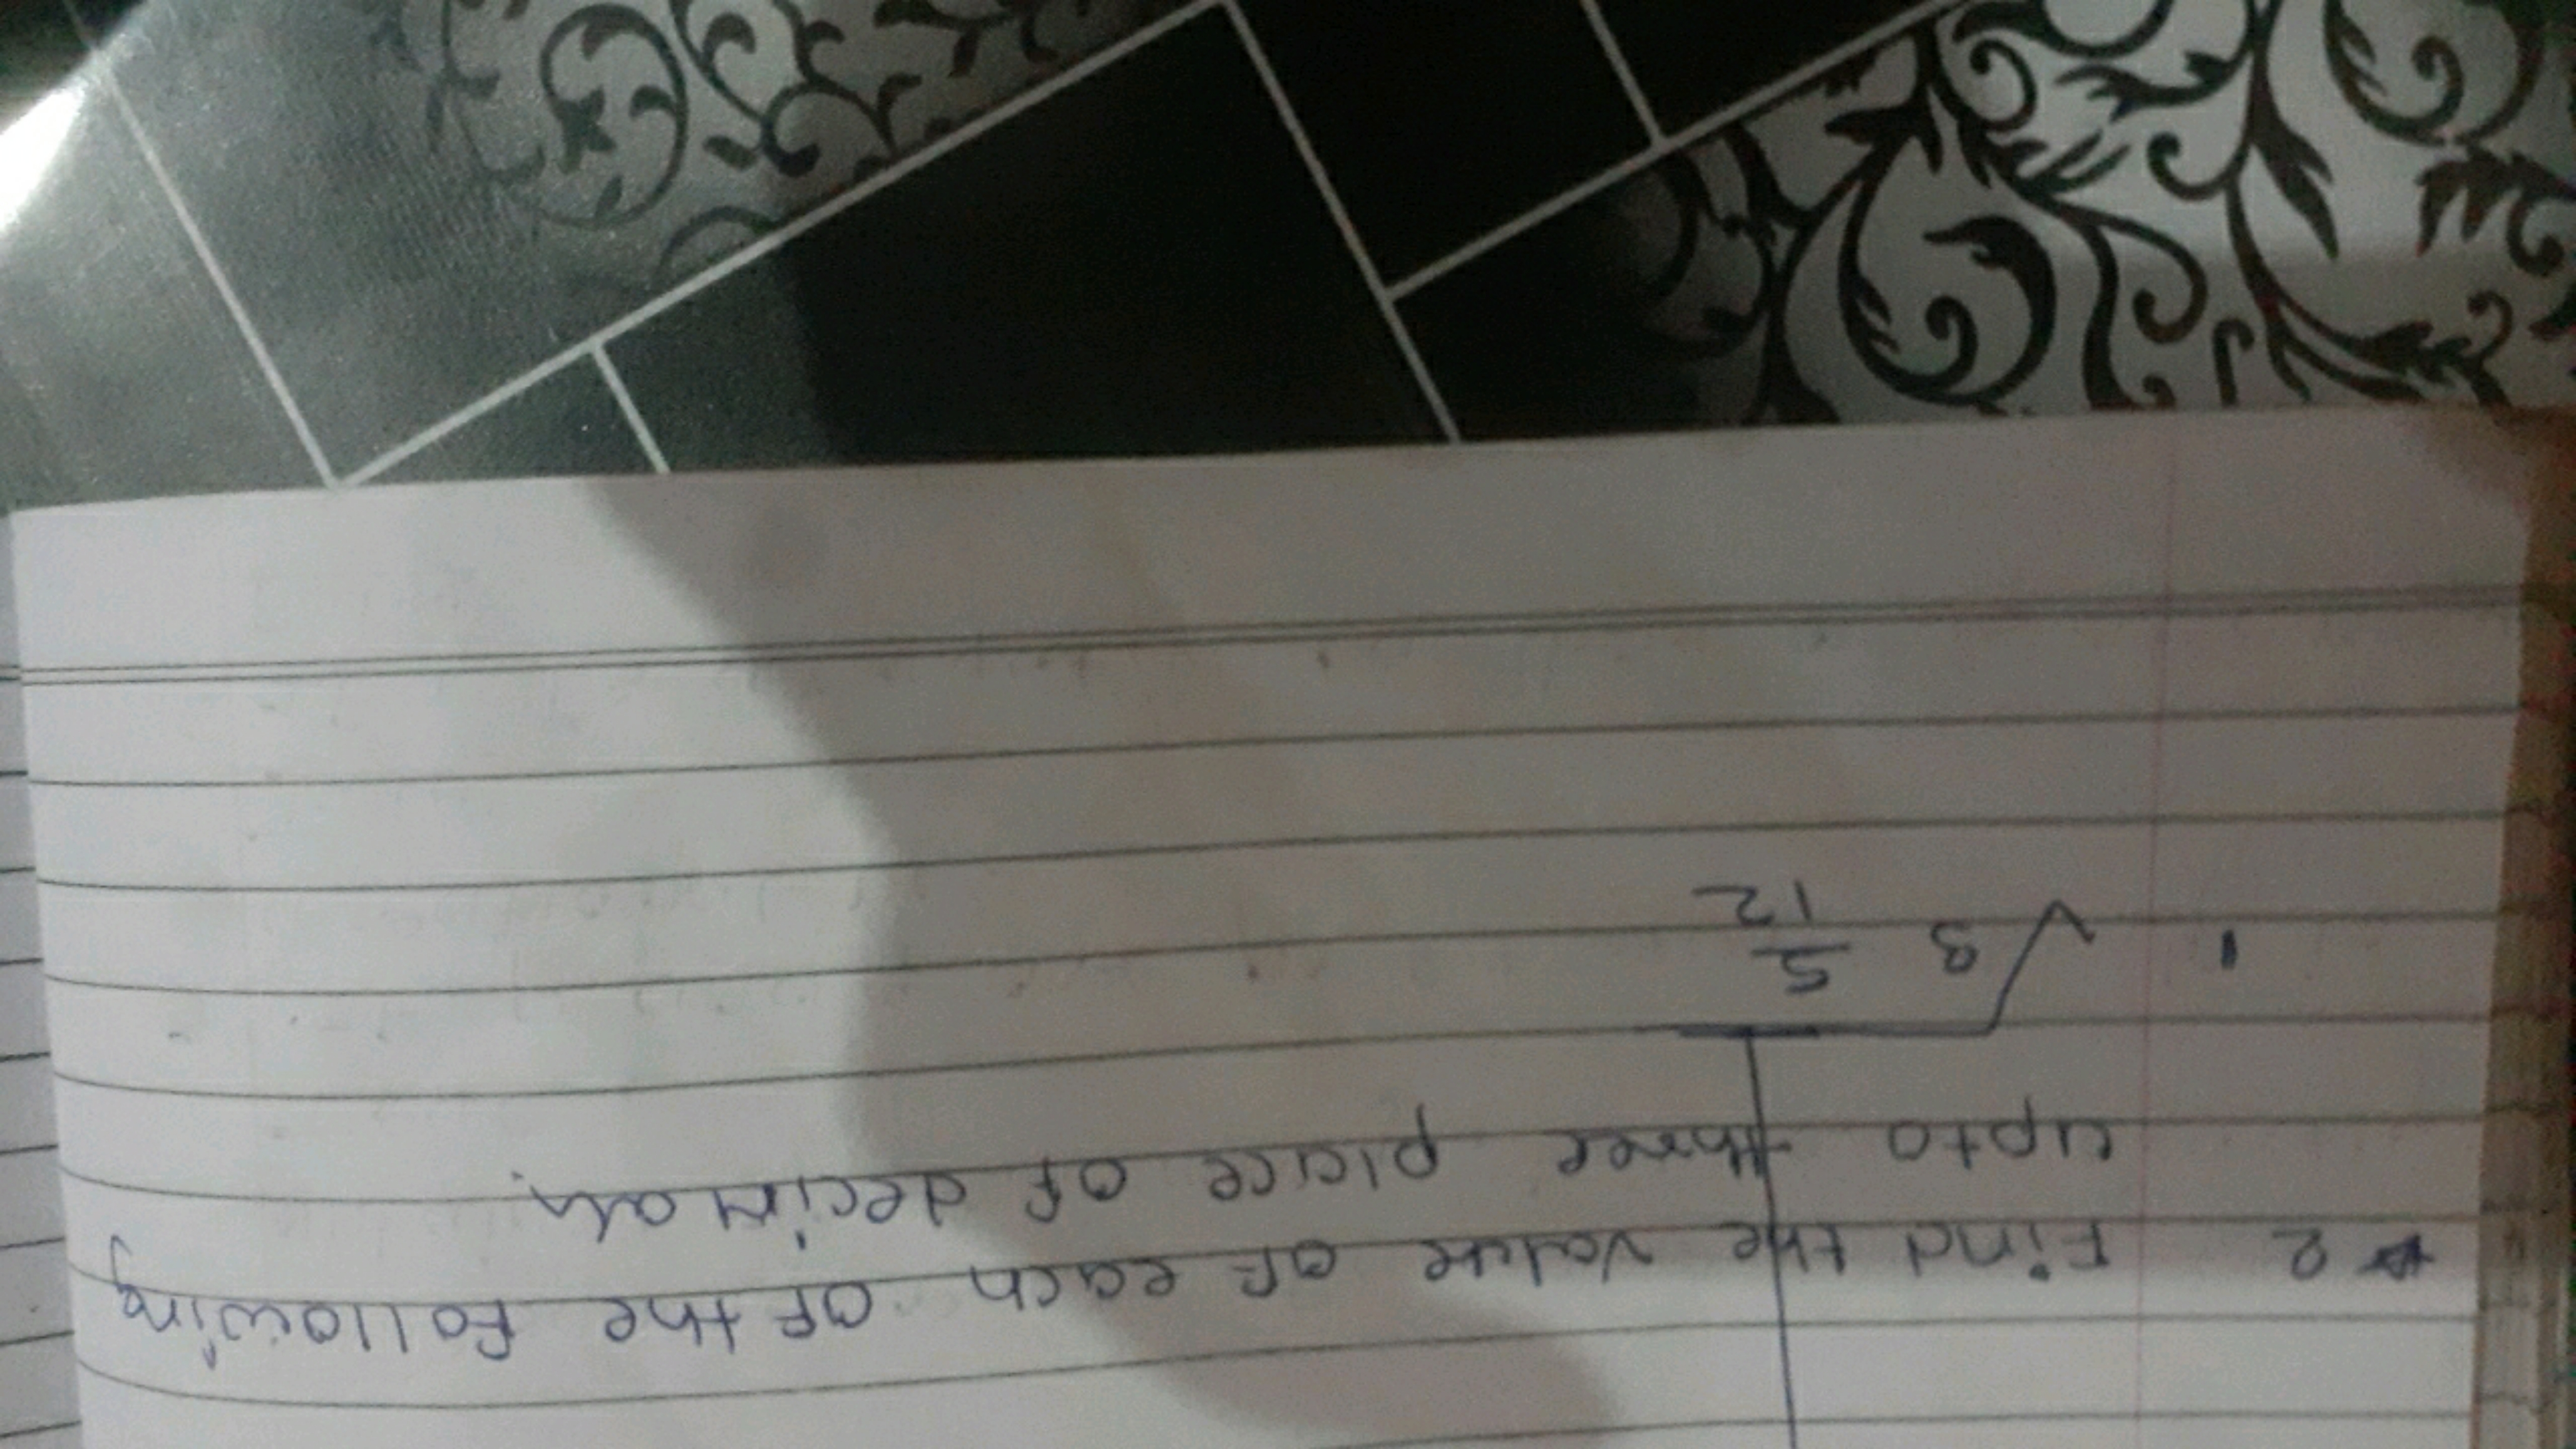 2 Find the value of each of the following
upto three place of decimals.
1 √ 5/12